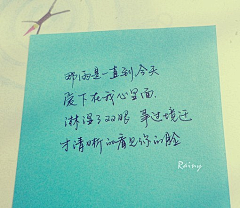 哪怕是一直到今天
没下在我心里面
淋湿了双眼 事过境迁
才清晰的看见你的脸
Rainy